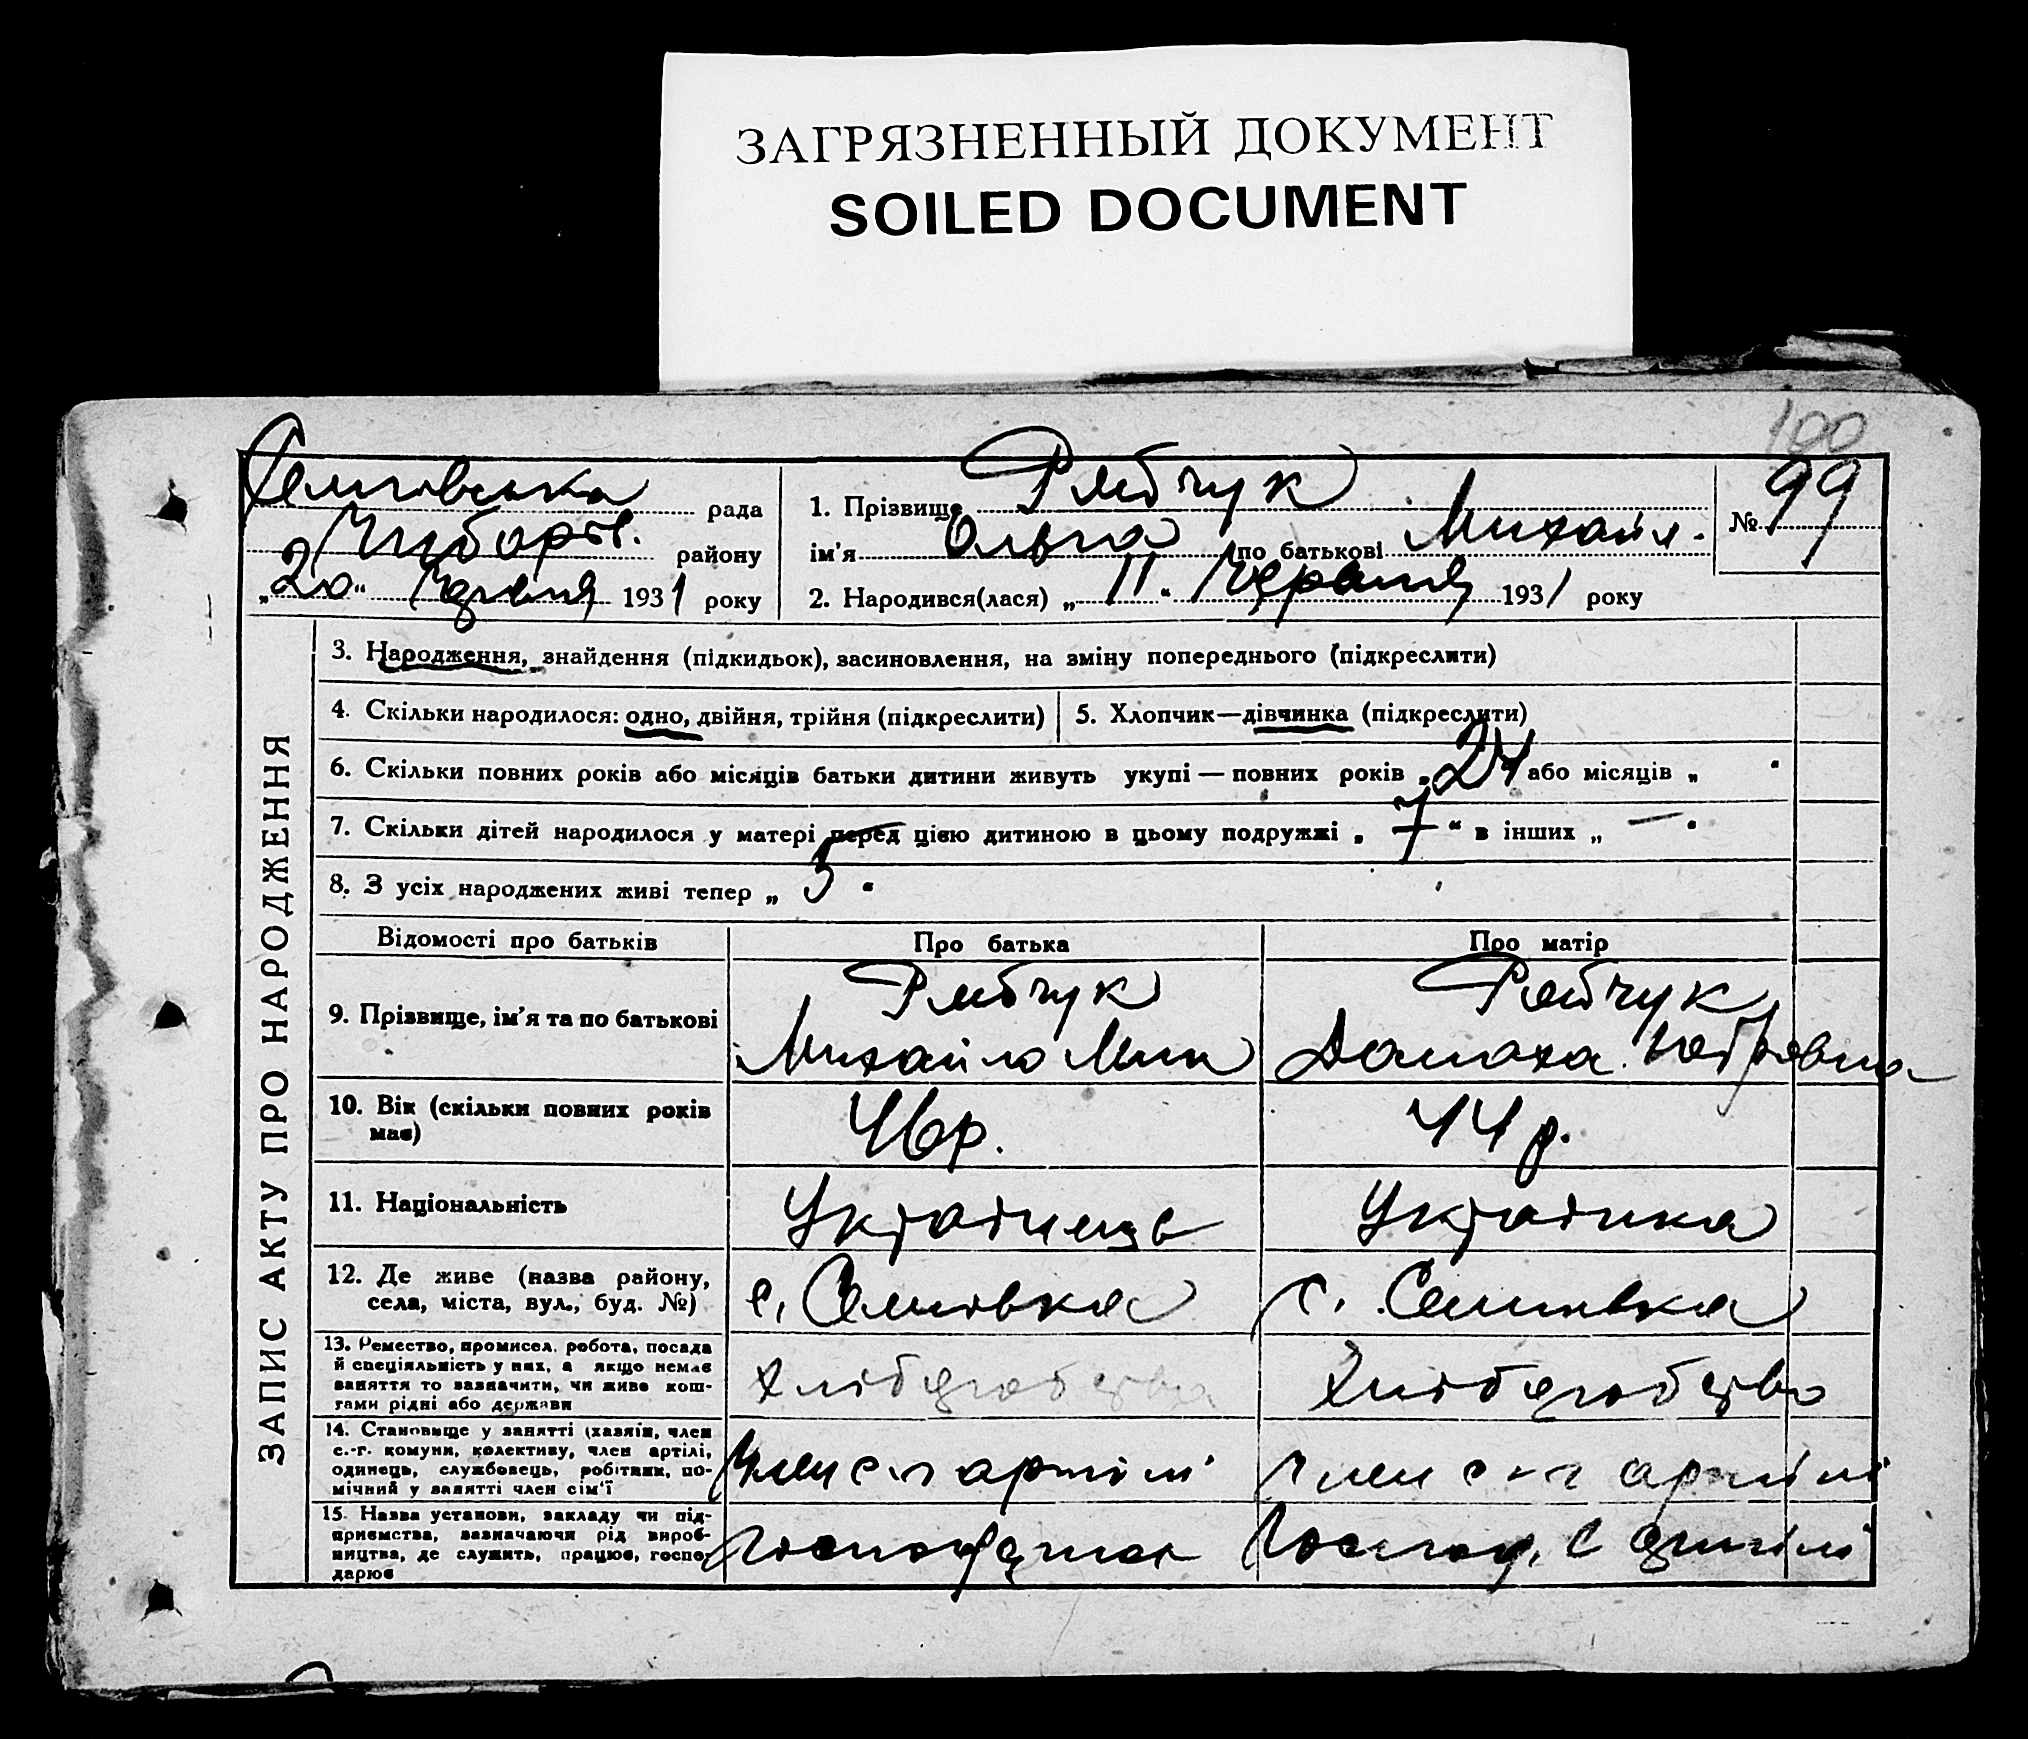 ЗАГРЯЗНЕННЫЙ ДОКУМЕНТ
SOILED DOCUMENT
100
рада
району
„20“ 1931 року
1. Прізвище Рябчук
ім'я Ольга по батькові Михайл.
2. Народився(лася) „11“ Червня 1931 року
№ 99
ЗАПИС АКТУ ПРО НАРОДЖЕННЯ
3. Народження, знайдення (підкидьок), засиновлення, на зміну попереднього (підкреслити)
4. Скільки народилося: одно, двійня, трійня (підкреслити)
5. Хлопчик—дівчинка (підкреслити)
6. Скільки повних років або місяців батьки дитини живуть укупі — повних років „24 або місяців „
7. Скільки дітей народилося у матері перед цією дитиною в цьому подружжі „ 7 “ в інших „ — “
8. З усіх народжених живі тепер „ 5 “
Відомості про батьків Про батька Про матір
9. Прізвище, ім'я та по батькові
Рябчук
Михайло
Рябчук
Домаха
10. Вік (скільки повних років має)
46 р.
44 р.
11. Національність
Українець
Українка
12. Де живе (назва району,
села, міста, вул., буд. №)
с. Семпівка
с. Семпівка
13. Ремество, промисел, робота, посада
й спеціяльність у них, а якщо немає
заняття то зазначити, чи живе кош-
тами рідні або держави
Хліборобство
Хліборобство
14. Становище у занятті (хазяїн, член
с.-г. комуни, колективу, член артілі,
одинець, службовець, робітник, по-
мічний у занятті член сім'ї
Член с-г артілі
Член с-г артілі
15. Назва установи, закладу чи під-
приємства, зазначаючи рід вироб-
ництва, де служить, працює, госпо-
дарює